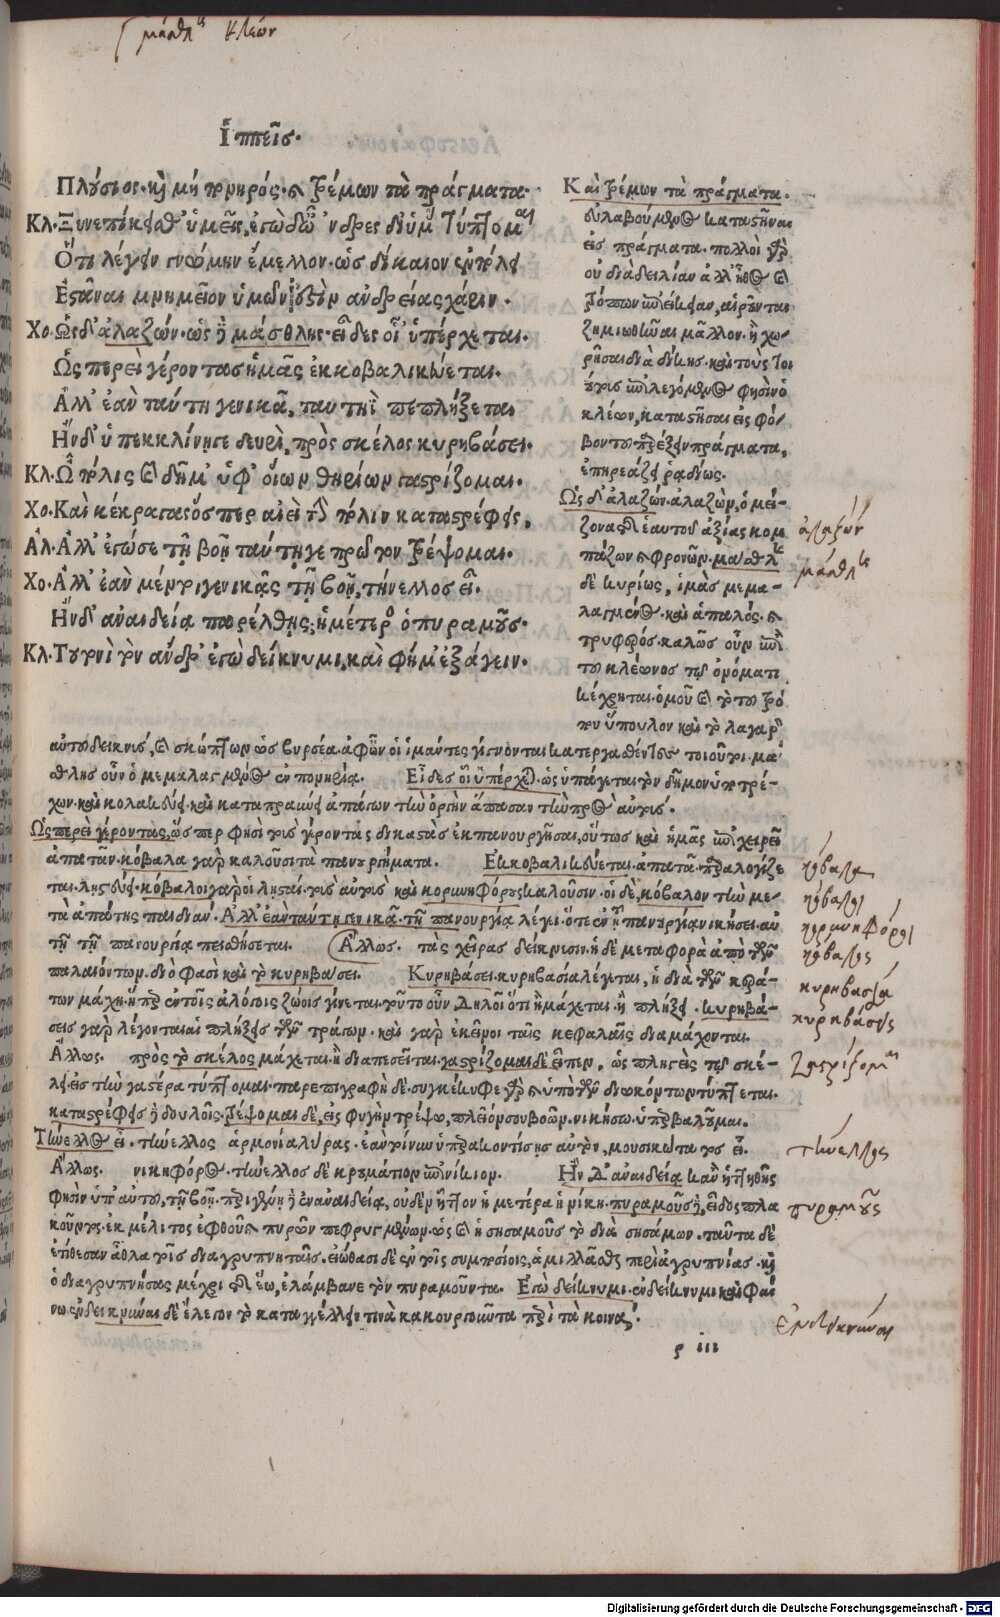 μάσθλης Κλέων
Ἱππεῖς.
Πλούσιος· καὶ μὴ πονηρός· καὶ τρέμων τὰ πράγματα·
Κλ. Ξυνεπίκεισθ' ὑμεῖς, ἐγὼ δ' ὦνδρες δι' ὑμᾶς τύπτομαι
Ὅτι λέγειν γνώμην ἔμελλον· ὡς δίκαιον ἐν πόλει
Ἑστάναι μνημεῖον ὑμῶν ἐστὶν ἀνδρείας χάριν.
Χο. Ὡς δ' ἀλαζών· ὡς δὲ μάσθλης· εἶδες οἷ' ὑπέρχεται.
Ὡς περεὶ γέροντας ἡμᾶς ἐκκοβαλικεύεται.
Ἀλλ' ἐὰν ταύτῃ γε νικᾷ, ταυτηῒ πεπλήξεται
Ἢν δ' ὑπεκκλίνῃ γε δευρὶ, πρὸς σκέλος κυρηβάσει.
Κλ. Ὦ πόλις καὶ δῆμ' ὑφ' οἵων θηρίων γαστρίζομαι.
Χο. Καὶ κέκραγας ὥσπερ αἰεὶ τὴν πόλιν καταστρέφεις,
Ἀλ. Ἀλλ' ἐγώ σε τῇ βοῇ ταύτῃ γε πρῶτον τρέψομαι.
Χο. Ἀλλ' ἐὰν μέντοι γε νικᾷς τῇ βοῇ, τήνελλος εἶ.
Ἢν δ' ἀναιδείᾳ παρέλθῃς, ἡμέτερος ὁ πυραμοῦς.
Κλ. Τουτονὶ τὸν ἄνδρ' ἐγὼ δείκνυμι, καὶ φήμ' ἐξάγειν.
Καὶ τρέμων τὰ πράγματα.
εὐλαβούμενος καταστῆναι
εἰς πράγματα. πολλοὶ γὰρ
οὐ διὰ δειλίαν ἀλλ' ἦθος καὶ
τρόπων ἐπιείκειαν, αἱροῦνται
ζημιωθῆναι μᾶλλον. ἢ χω-
ρῆσαι διὰ δίκης. καὶ τοὺς τοι
ούτοις ἐπιλεγόμενος φησὶν ὁ
κλέων, καταστῆσαι εἰς φό-
βον τοῦ παρέξειν πράγματα,
ἐπηρεάζει ῥᾳδίως.
Ὡς δ' ἀλαζών. ἀλαζὼν, ὁ μεί-
ζονα τῆς ἑαυτοῦ ἀξίας κομ
πάζων καὶ φρονῶν. μάσθλης
δὲ κυρίως, ἱμὰς μεμα-
λαγμένος. καὶ ἁπαλός. καὶ
τρυφερός. καλῶς οὖν ἐπὶ
τοῦ κλέωνος τῷ ὀνόματι
κέχρηται. ὁμοῦ καὶ τὸ τοῦ τρό
που ὕπουλον καὶ τὸ λαγαρὸν
αὐτοῦ δεικνύς, καὶ σκώπτων ὡς βυρσέα. ἀφ' ὧν οἱ ἱμάντες γίγνονται κατεργασθέντες τοιοῦτοι. μά-
σθλης οὖν ὁ μεμαλαγμένος ἐν πονηρίᾳ. Εἶδες οἷ' ὑπέρχεται. ὡς ὑπάγεται τὸν δῆμον ὑποτρέ-
χων. καὶ κολακεύει. καὶ καταπραΰνει ἁπάσων τὴν ὀργὴν ἅπασαν τὴν πρὸς αὐτούς.
Ὡς περεὶ γέροντας, ὥσπερ φησὶ τοὺς γέροντας δικαστὰς ἐκπανουργῆσαι, οὕτως καὶ ἡμᾶς ἐπιχειρεῖ
ἀπατᾶν. κόβαλα γὰρ καλοῦσι τὰ πανουργήματα. Ἐκκοβαλικεύεται. ἀπατᾷ. παραλογίζε
ται. λῃστεύει. κόβαλοι γὰρ οἱ λῃσταί. τοὺς αὐτοὺς καὶ κορωνηφόρους καλοῦσιν. οἱ δὲ, κόβαλον τὴν με-
τὰ ἀπάτης παιδιάν. Ἀλλ' ἐὰν ταύτῃ γε νικᾷ. τῇ πανουργίᾳ λέγει. ὅτε ἐν ᾗ πανουργίᾳ νικήσει αὐ
τῇ τῇ πανουργίᾳ πεισθήσεται. Ἄλλως. τὰς χεῖρας δείκνυσιν. ἡ δὲ μεταφορὰ ἀπὸ τῶν
παλαιόντων. διό φασι καὶ τὸ κυρηβάσει. Κυρηβάσει. κυρηβασία λέγεται, ἡ διὰ τῶν κεράτων μάχη. ἢ παρὰ ἐν τοῖς ἀλόγοις ζώοις γίνεται. τοῦτο οὖν, δηλοῖ ὅτι ἢ μάχεται. ἢ πλήξει. κυρηβά-
σεις γὰρ λέγονται αἱ πλήξεις τῶν τράγων. καὶ γὰρ ἐκεῖνοι ταῖς κεφαλαῖς διαμάχονται.
Ἄλλως. πρὸς τὸ σκέλος μάχεται. ἢ διαπεσεῖται. γαστρίζομαι δὲ εἶπεν, ὡς πληγεὶς τῷ σκέ-
λει εἰς τὴν γαστέρα τύπτομαι. παρεπιγραφὴ δὲ. συγκέκυφε γὰρ καὶ ὑπὸ τῶν διωκόντων τύπτεται.
καταστρέφεις δὲ δουλοῖς. τρέψομαι δὲ, εἰς φυγὴν τρέψω, πλεῖόν σου βοῶν. νικήσω. ὑπερβαλοῦμαι.
Τήνελλος εἶ. τήνελλος ἁρμονία λύρας. ἐὰν τοίνυν ὑπερακοντίσῃς αὐτὸν, μουσικώτατος εἶ.
Ἄλλως. νικηφόρος. τήνελλος δὲ κρουμάτιον ἐπινίκιον. Ἢν δ' ἀναιδείᾳ κἂν ἡττηθῇς
φησὶν ὑπ' αὐτοῦ, τῇ βοῇ. περιγένῃ δὲ ἐν ἀναιδείᾳ, οὐδὲν ἧττον ἡμετέρα ἡ νίκη. πυραμοῦς δὲ, εἶδος πλα
κοῦντος. ἐκ μέλιτος ἑφθοῦ καὶ πυρῶν πεφρυγμένων. ὡς καὶ ἡ σησαμοῦς τὸ διὰ σησάμων. ταῦτα δὲ
ἐτίθεσαν ἆθλα τοῖς διαγρυπνηταῖς. εἰώθασι δὲ ἐν τοῖς συμποσίοις, ἁμιλλᾶσθαι περὶ ἀγρυπνίας. καὶ
ὁ διαγρυπνήσας μέχρι τῆς ἕω, ἐλάμβανε τὸν πυραμοῦντα. Ἐγὼ δείκνυμι. ἐνδείκνυμι καὶ φαί
νω. ἐνδεικνύναι δὲ ἔλεγον τὸ καταγγέλλειν τινὰ κακουργοῦντα περὶ τὰ κοινά.
ς iii
ἀλαζών
μάσθλης
κόβαλα
κόβαλοι
κορωνηφόροι
κόβαλος
κυρηβασία
κυρηβάσεις
γαστρίζομαι
τήνελλος
πυραμοῦς
ἐνδεικνύναι
Digitalisierung gefördert durch die Deutsche Forschungsgemeinschaft - DFG